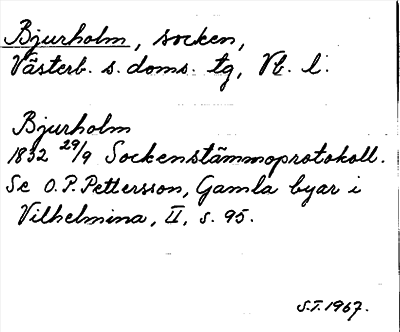 Bjurholm, socken,
Västerb. s. doms. tg, Vb. l.
Bjurholm
1832 29/9 Sockenstämmoprotokoll.
Se O.P. Pettersson, Gamla byar i
Vilhelmina, II, s. 95.
S.T. 1967.